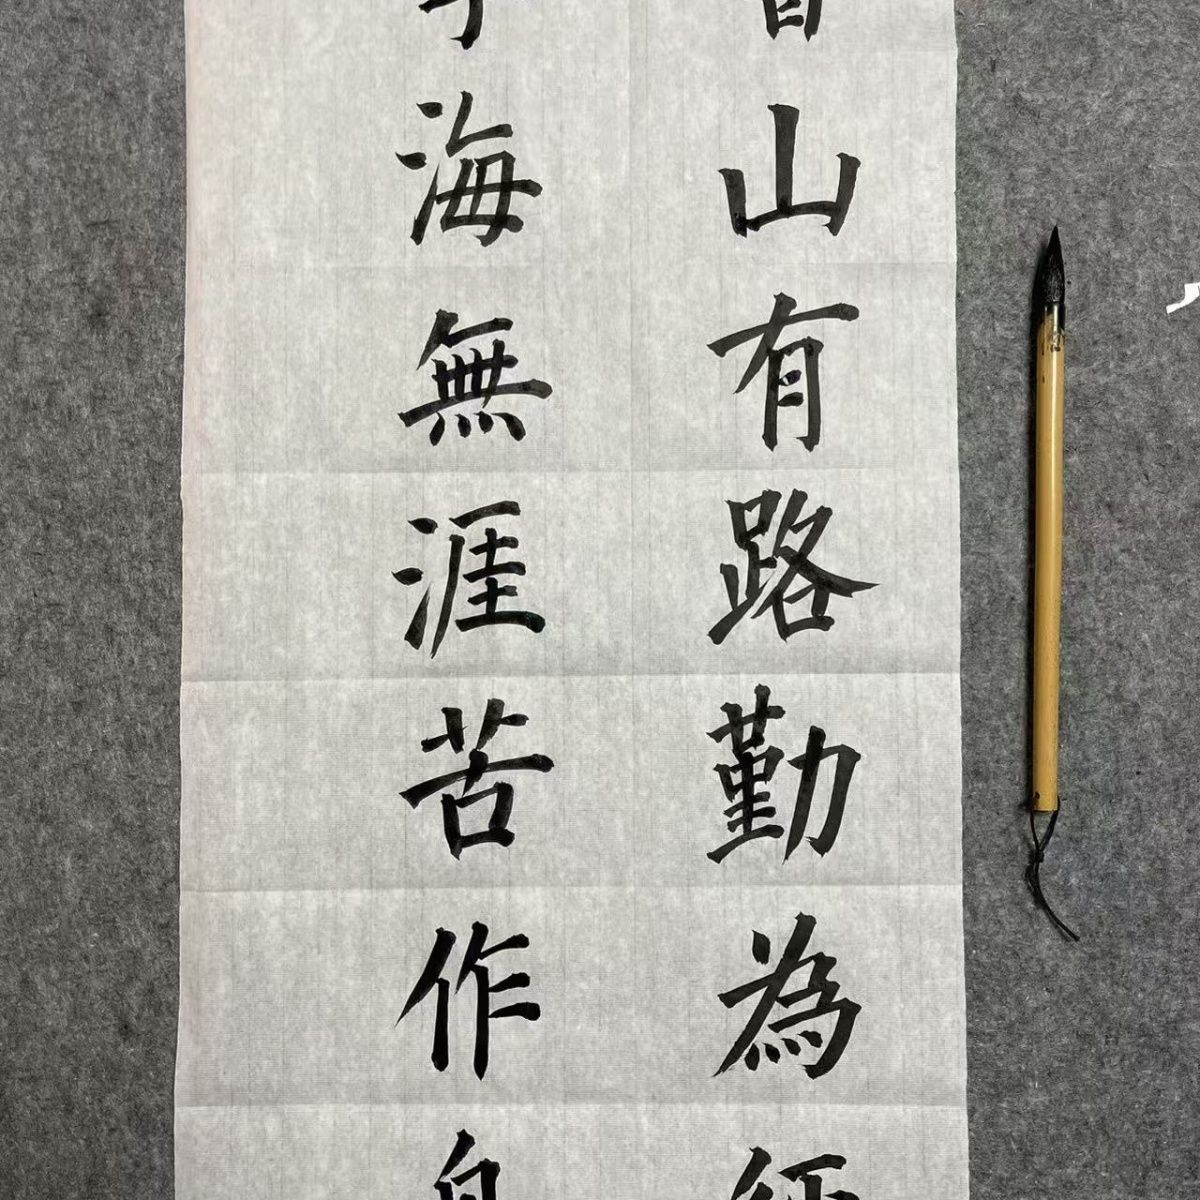 山有路勤為
海無涯苦作